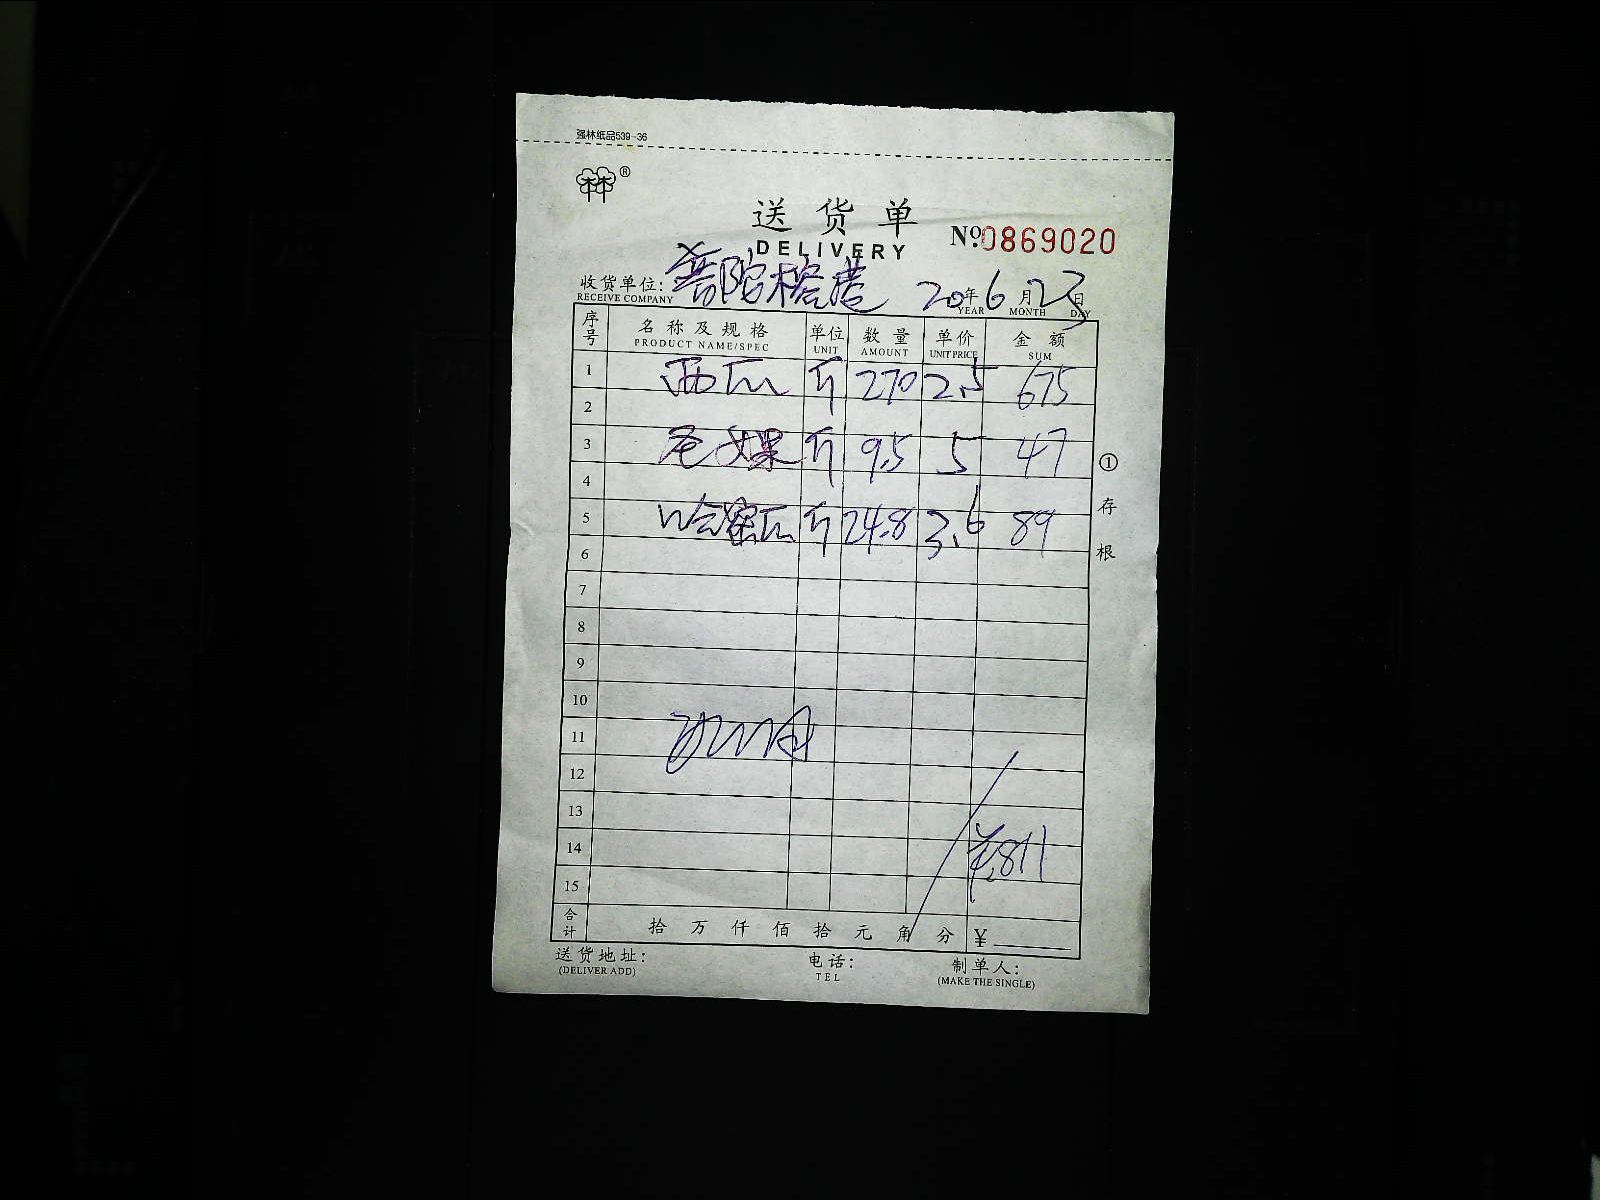 强林纸品539-36
林®
送货单
DELIVERY
№0869020
收货单位: 普陀榕港 20年6月23日
RECEIVE COMPANY YEAR MONTH DAY
序号 名称及规格 单位 数量 单价 金额
PRODUCT NAME/SPEC UNIT AMOUNT UNIT PRICE SUM
1 西瓜 斤 270 2.5 675
2
3 斤 9.5 5 47
4
5 哈密瓜 斤 24.8 3.6 89
6
7
8
9
10
11
12
13
14 ¥811
15
合计 拾 万 仟 佰 拾 元 角 分 ¥
①存根
送货地址: 电话: 制单人:
(DELIVER ADD) TEL (MAKE THE SINGLE)